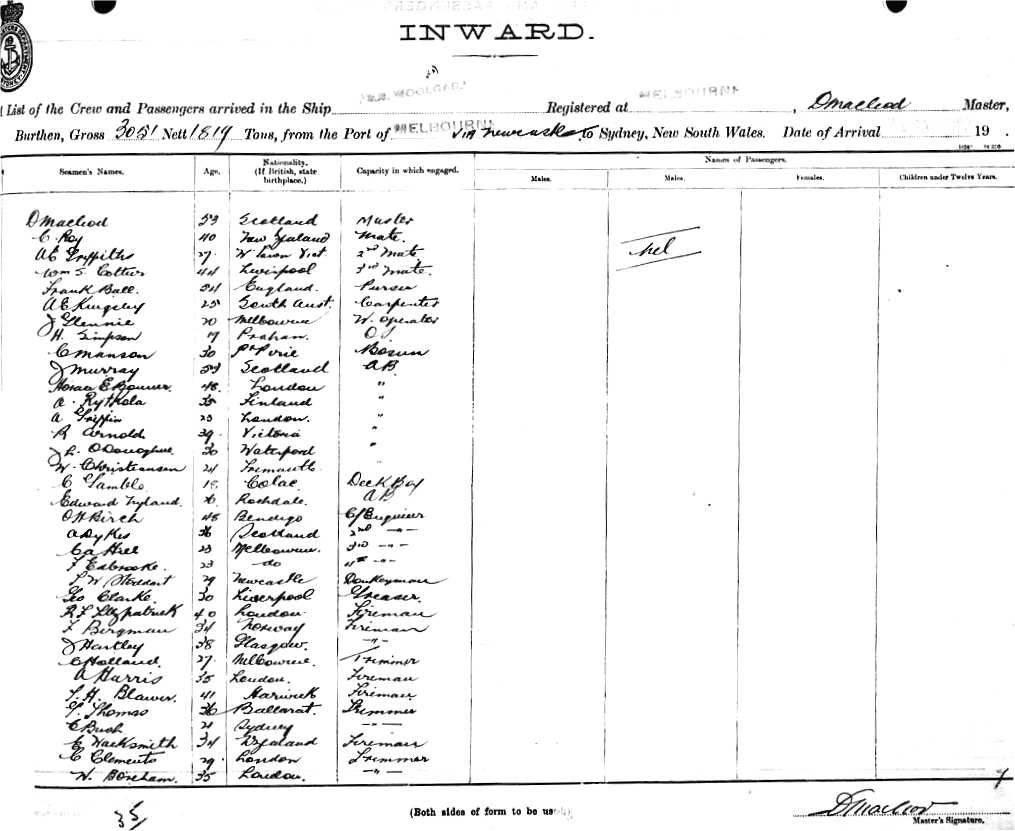 INWARD.
List of the Crew and Passengers arrived in the Ship Registered at MELBOURNE, DMacleod Master,
Burthen, Gross 3051 Nett 1819 Tons, from the Port of MELBOURNE via Newcastle to Sydney, New South Wales. Date of Arrival 19 .
Seamen's Names. Age. Nationality. (If British, state birthplace.) Capacity in which engaged. Names of Passengers.
Males. Males. Females. Children under Twelve Years.
DMacleod 53 Scotland Master
C. Roy 40 New Zealand Mate. Nil
A E Griffiths 27 W Vict 2nd Mate
Wm S. Cottier 44 Liverpool 3rd Mate.
Frank Ball. 54 England. Purser
A E Kingsley 25 South Aust. Carpenter
J Glennie 20 Melbourne W. Operator
H. Simpson 19 Prahan. O S
C Manson 30 Pt Pirie Bosun
J Murray 53 Scotland AB
Horace E Bonner. 48. London "
A. Rythola 35 Finland "
A Griffin 23 London. "
R Arnold 39 Victoria "
J L. O'Donoghue 30 Waterford
W. Christiansen 21 Fremantle "
C Gamble 18 Colac Deck Boy
Edward Hyland. 36 Rochdale. AB
O H Birch 48 Bendigo C/Engineer
A Dykes 36 Scotland 2nd -"-
C A Hill 23 Melbourne. 3rd -"-
F Edbrooke. 23 -do 4th -"-
L W Stoddart 29 Newcastle Donkeyman
Geo Clarke. 30 Liverpool Greaser.
R F Fitzpatrick 40 London Fireman
F Bergman 34 Norway Fireman
J Hartley 38 Glasgow. -"-
C Holland. 27. Melbourne. Trimmer
A Harris 35 London. Fireman
T. H. Blawer. 41 Harwich Fireman
G. Thomas 36 Ballarat. Trimmer
C Bush 21 Sydney -"-
C Wacksmith 34 N Zealand Fireman
C Clements 29. London Trimmer
W. Boreham. 35 London. -"-
35/
(Both sides of form to be used.)
DMacleod
Master's Signature.